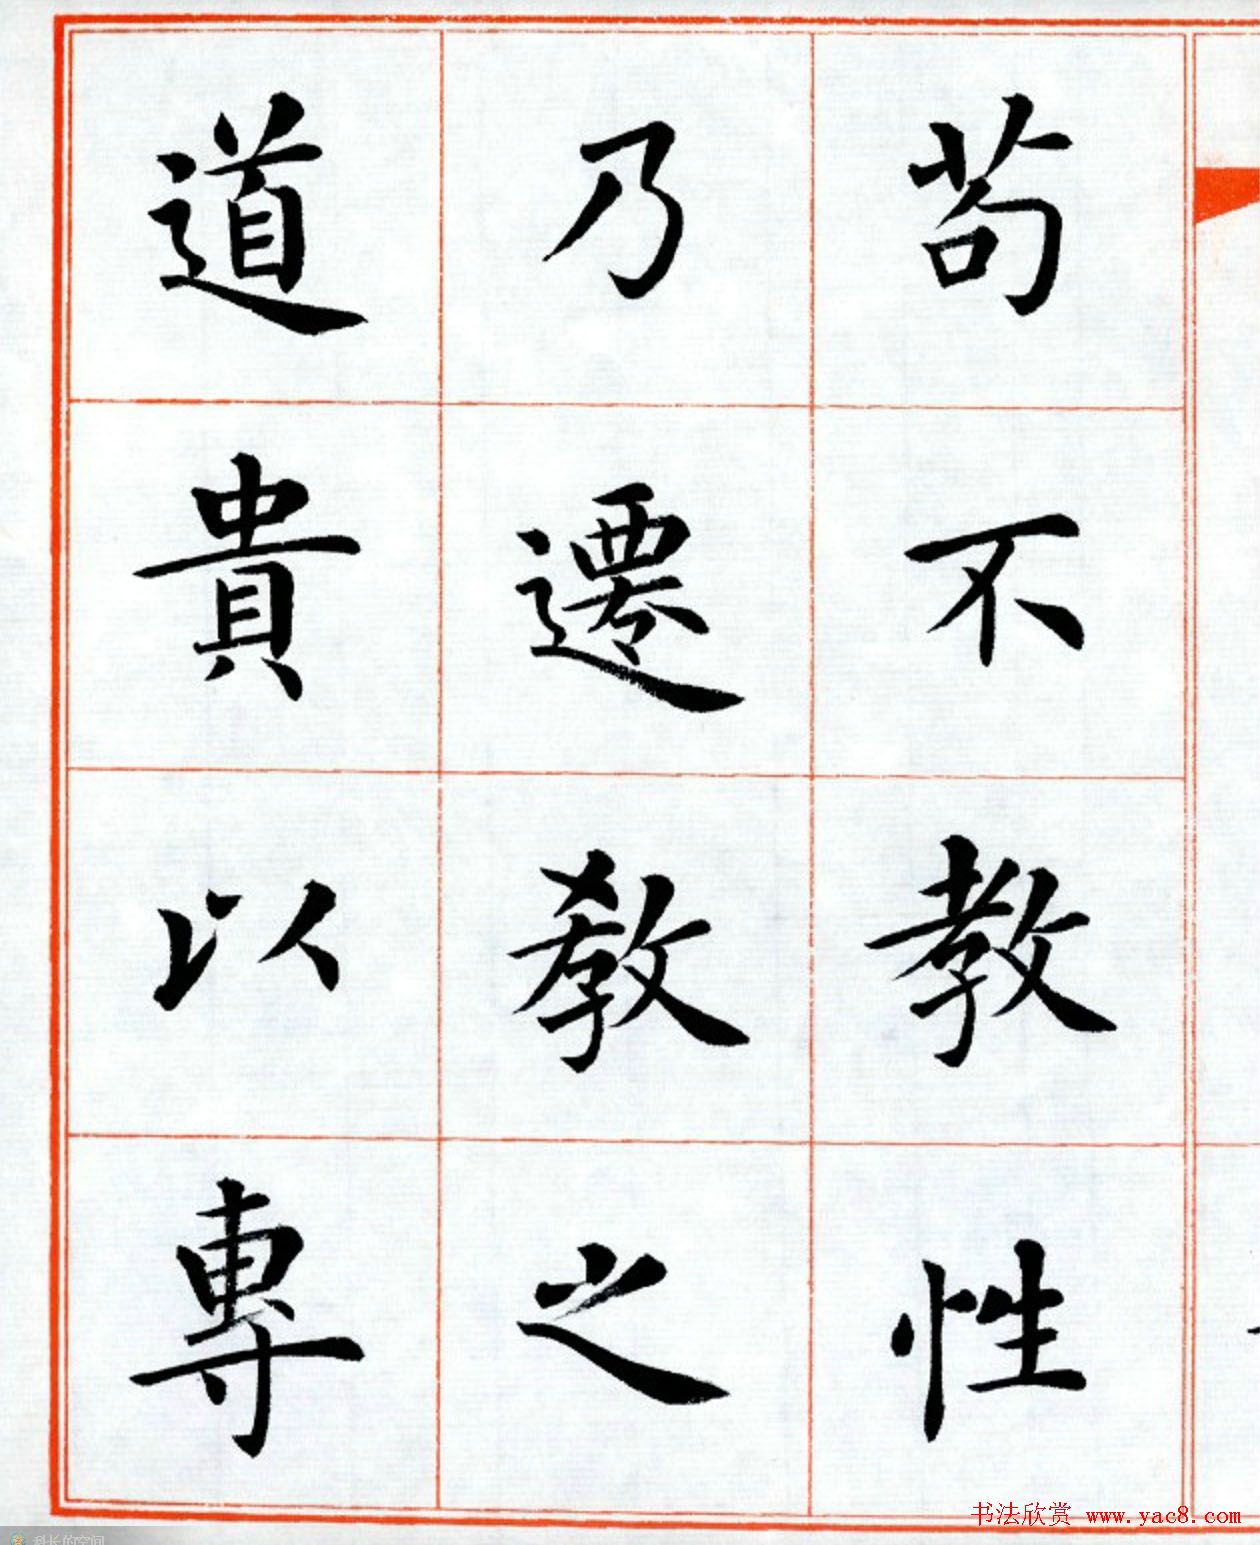 苟不教性
乃遷教之
道貴以專
书法欣赏 www.yac8.com
科长的空间